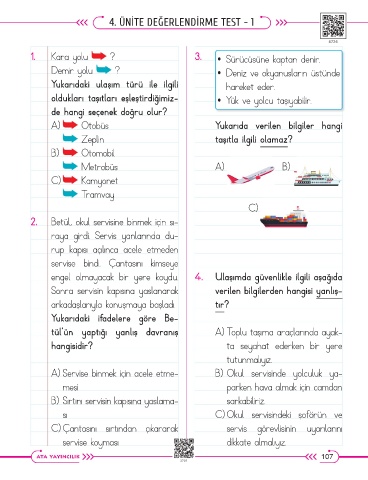 4. ÜNİTE DEĞERLENDİRME TEST - 1
1. Kara yolu ?
Demir yolu ?
Yukarıdaki ulaşım türü ile ilgili
oldukları taşıtları eşleştirdiğimiz-
de hangi seçenek doğru olur?
A) Otobüs
Zeplin
B) Otomobil
Metrobüs
C) Kamyonet
Tramvay
2. Betül, okul servisine binmek için sı-
raya girdi. Servis yanlarında du-
rup kapısı açılınca acele etmeden
servise bindi. Çantasını kimseye
engel olmayacak bir yere koydu.
Sonra servisin kapısına yaslanarak
arkadaşlarıyla konuşmaya başladı.
Yukarıdaki ifadelere göre Be-
tül'ün yaptığı yanlış davranış
hangisidir?
A) Servise binmek için acele etme-
mesi
B) Sırtını servisin kapısına yaslama-
sı
C) Çantasını sırtından çıkararak
servise koyması
3. • Sürücüsüne kaptan denir.
• Deniz ve okyanusların üstünde
hareket eder.
• Yük ve yolcu taşıyabilir.
Yukarıda verilen bilgiler hangi
taşıtla ilgili olamaz?
A) B)
C)
4. Ulaşımda güvenlikle ilgili aşağıda
verilen bilgilerden hangisi yanlış-
tır?
A) Toplu taşıma araçlarında ayak-
ta seyahat ederken bir yere
tutunmalıyız.
B) Okul servisinde yolculuk ya-
parken hava almak için camdan
sarkabiliriz.
C) Okul servisindeki şoförün ve
servis görevlisinin uyarılarını
dikkate almalıyız.
ATA YAYINCILIK
107